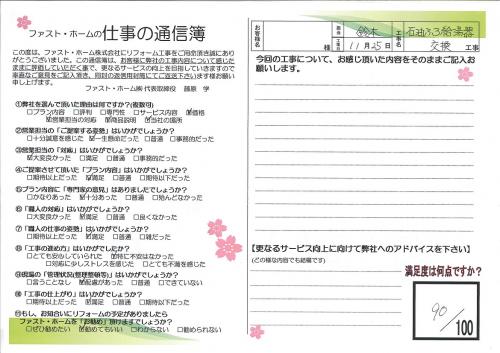 ファスト・ホームの仕事の通信簿
この度は、ファスト・ホーム株式会社にリフォーム工事をご用命頂き誠にありがとうございました。この通信簿は、お客様に弊社の工事内容について感じたままに評価していただく事で、更なるサービスの向上を目指していきますので率直なご意見をご記入頂き、同封の返信用封筒にてご返送下さいます様お願い申し上げます。
ファスト・ホーム㈱ 代表取締役 藤原 学
①弊社を選んで頂いた理由は何ですか?(複数可)
□プラン内容 □評判 □専門性 □サービス内容 ☑価格
☑営業担当の対応 ☑商品説明 ☑当社の場所
②営業担当の「ご提案する姿勢」はいかがでしょうか?
□十分誠意を感じた ☑一生懸命だった □普通 □事務的だった
③営業担当の「対応」はいかがでしょうか?
☑大変良かった □満足 □普通 □事務的だった
④ご提案させて頂いた「プラン内容」はいかがでしょうか?
□期待以上だった ☑満足 □普通 □期待以下だった
⑤プラン内容に「専門家の意見」はありましたでしょうか?
□かなりあった ☑十分あった □普通 □殆んどなかった
⑥「職人の対応」はいかがでしょうか?
□大変良かった ☑満足 □普通 □良くなかった
⑦「職人の仕事の姿勢」はいかがでしょうか?
□期待以上だった ☑満足 □普通 □雑だった
⑧「工事の進め方」はいかがでしたか?
□とても安心していられた ☑特に不安はなかった
□対応に少しストレスを感じた □とても不満を感じた
⑨現場の「管理状況(整理整頓等)」はいかがでしょうか?
□言うことなし ☑配慮があった □普通 □できていない
⑩「工事の仕上がり」はいかがでしょうか?
□期待以上だった ☑満足 □普通 □期待以下だった
⑪もし、お知合いにリフォームの予定がありましたら
ファスト・ホームを「お勧め」頂けますでしょうか?
□ぜひ勧めたい ☑勧めてもいい □わからない □勧められない
お客様名 鈴木 様
工事日 11月25日
工事名 石油ふろ給湯器交換 工事
今回の工事について、お感じ頂いた内容をそのままご記入お願いします。
【更なるサービス向上に向けて弊社へのアドバイスを下さい】
(どの様な内容でも結構です)
満足度は何点ですか?
90/100